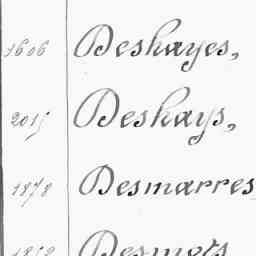 1606 Deshayes,
2015 Deshays,
1878 Desmarres
Desmots